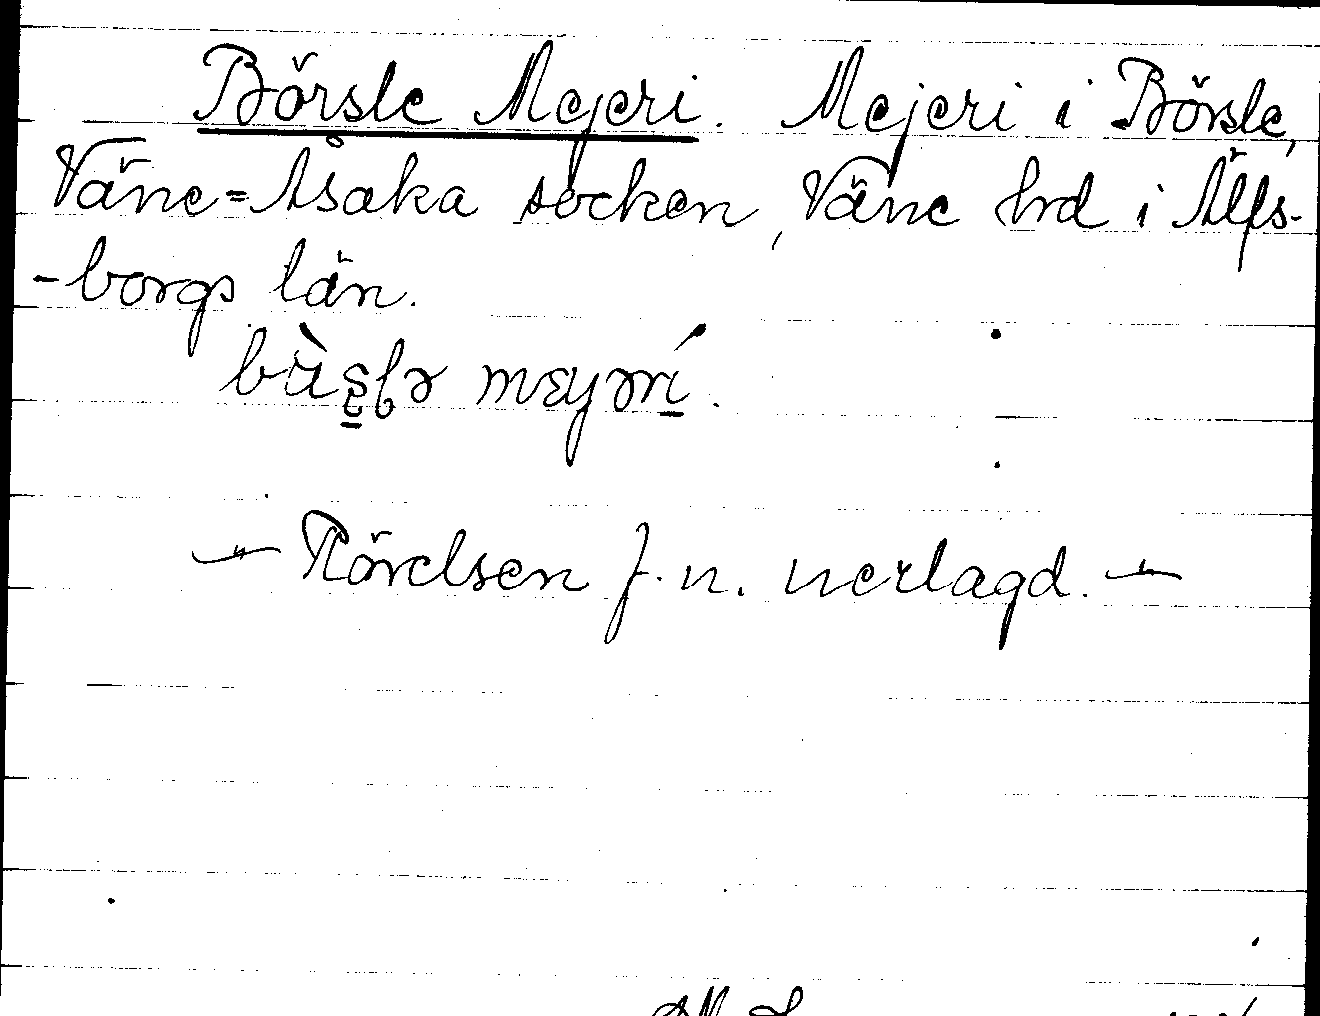 Börsle Mejeri. Mejeri i Börsle,
Väne=Åsaka socken, Väne hrd i Älfs-
-borgs län.
— Rörelsen f. n. nerlagd. —